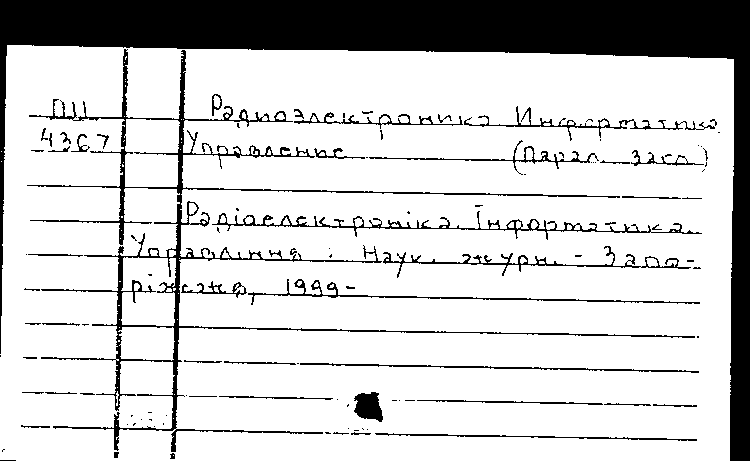 ПШ Радиоэлектроника Информатика
4367 Управление (Парал. загл)
Радіоелектроніка. Інформатика.
Управління : Наук. журн. - Запо-
ріжжя, 1999-